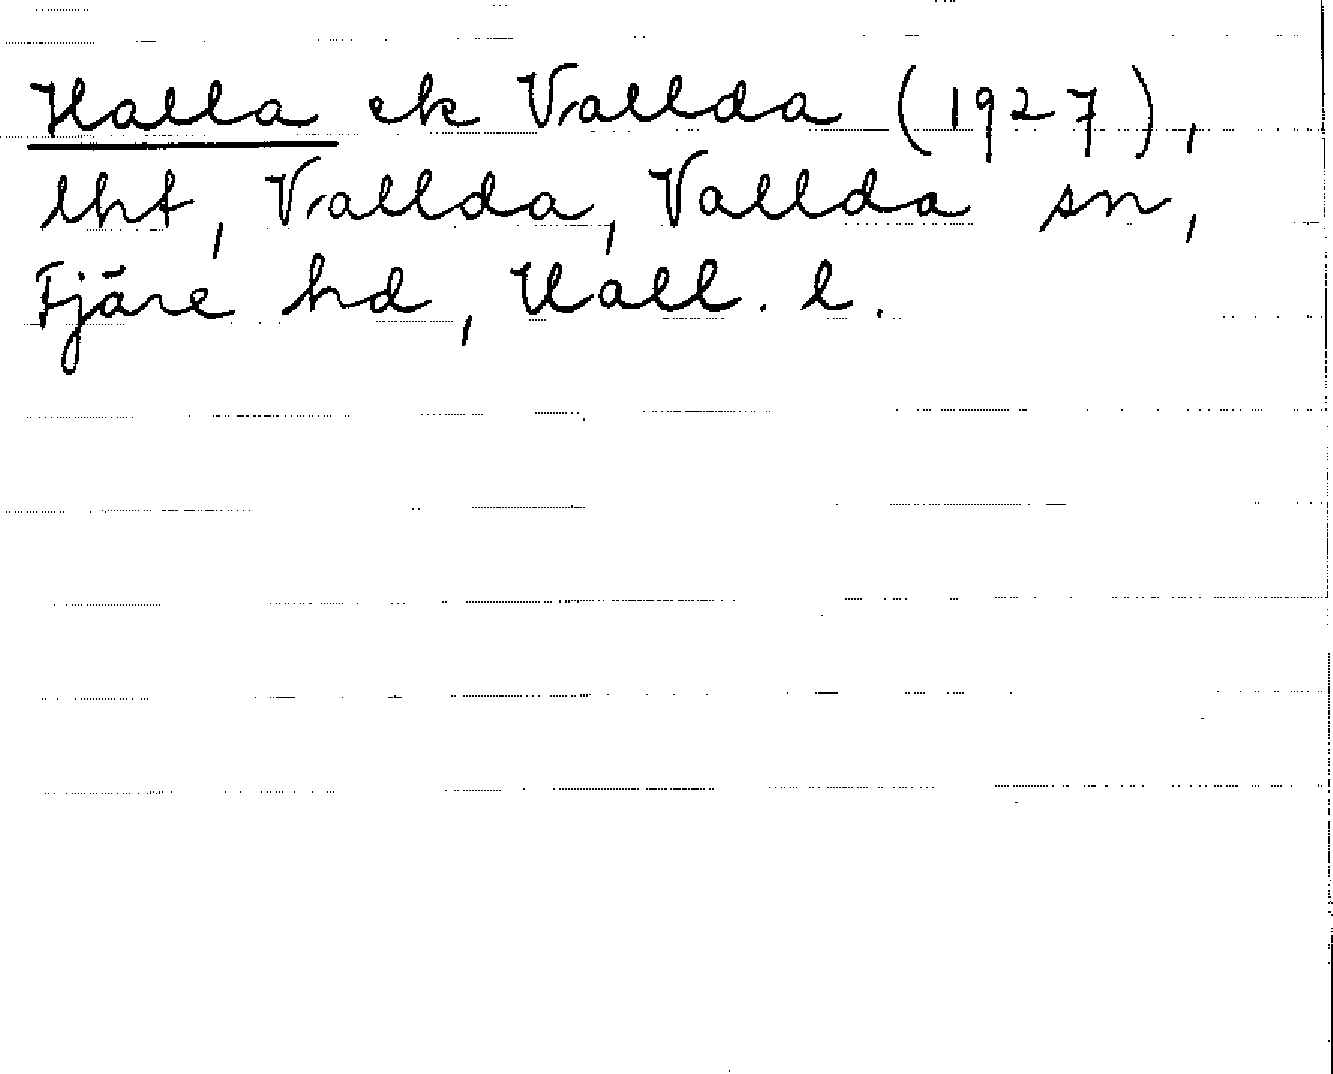 Halla ek Vallda (1927),
lht, Vallda, Vallda sn,
Fjäre hd, Hall. l.